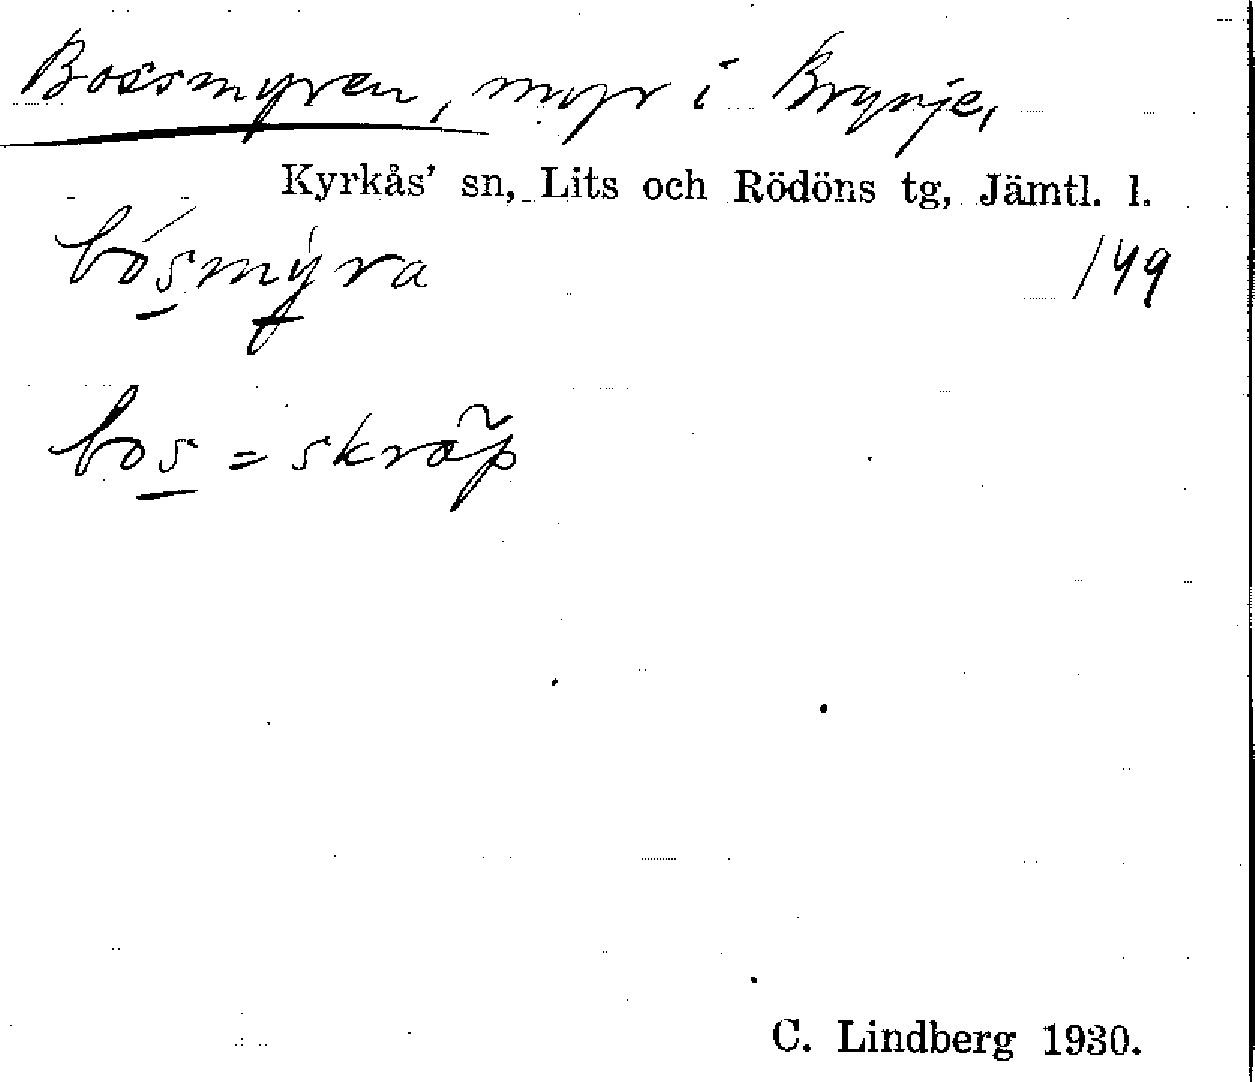 Bossmyren, myr i Brynje,
Kyrkås' sn, Lits och Rödöns tg, Jämtl. l.
bósmýra
149
bos = skräp
C. Lindberg 1930.